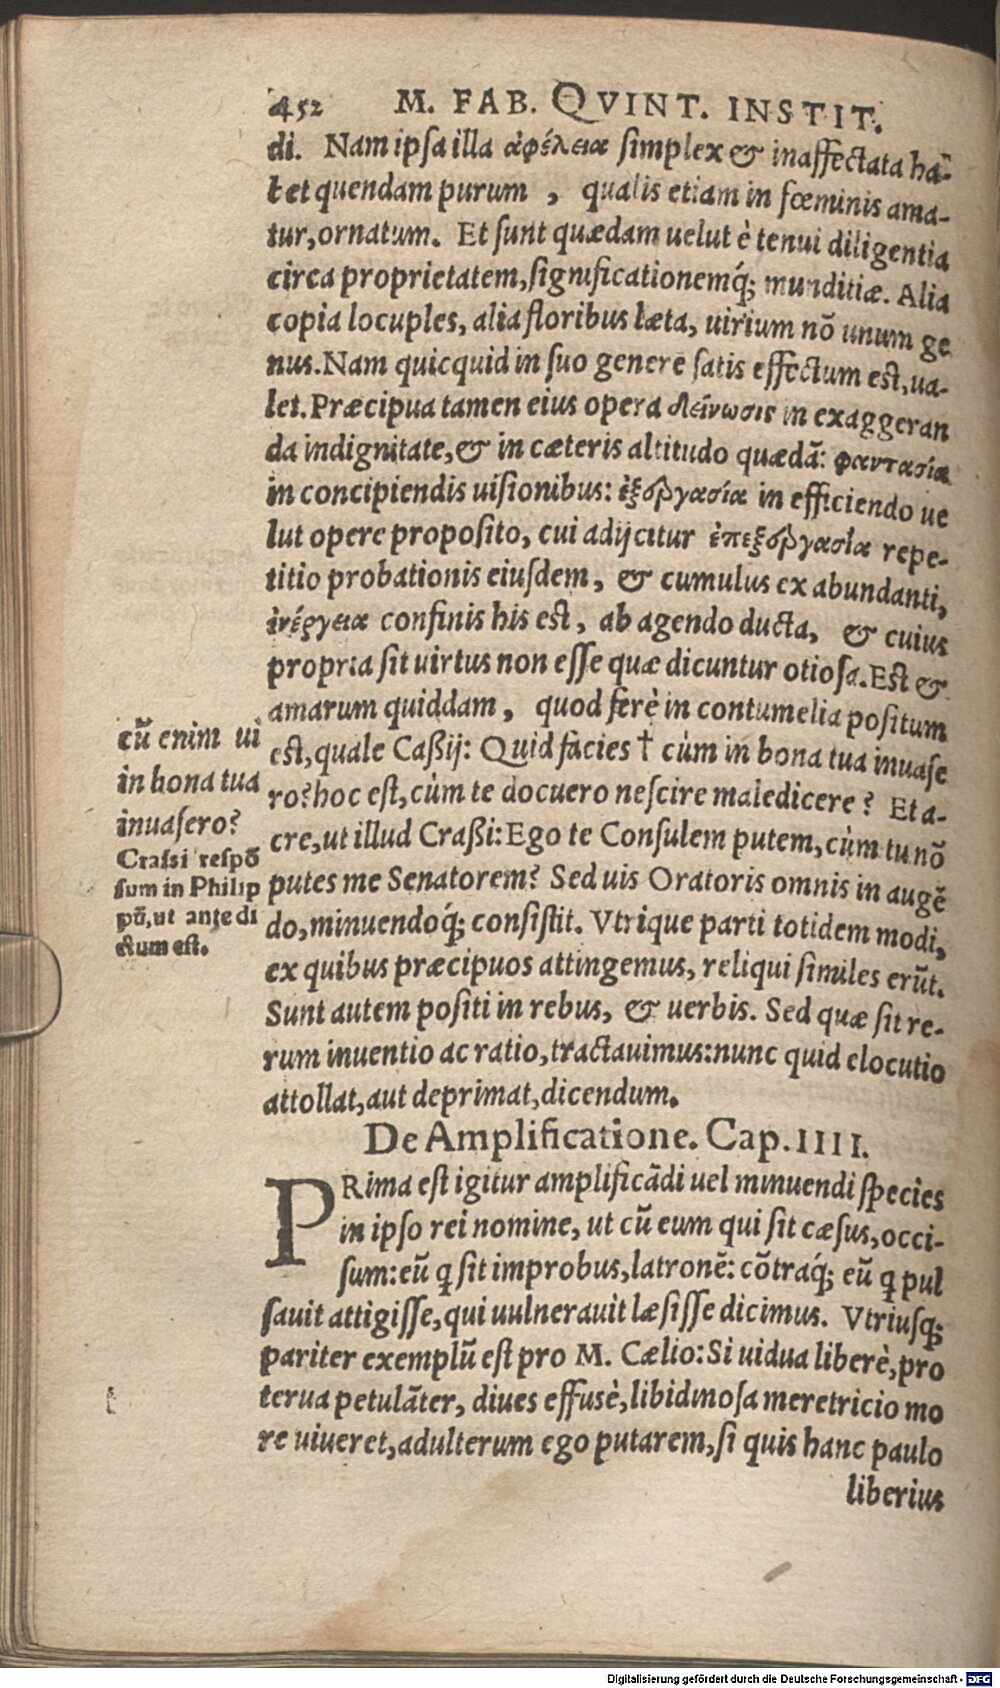 452 M. FAB. QVINT. INSTIT.
di. Nam ipsa illa ἀφέλεια simplex & inaffectata ha-
bet quendam purum, qualis etiam in fœminis ama-
tur, ornatum. Et sunt quædam uelut è tenui diligentia
circa proprietatem, significationemq́; munditiæ. Alia
copia locuples, alia floribus læta, uirium nō unum ge
nus. Nam quicquid in suo genere satis effectum est, ua-
let. Præcipua tamen eius opera δείνωσις in exaggeran
da indignitate, & in cæteris altitudo quædā: φαντασία
in concipiendis uisionibus: ἐξεργασία in efficiendo ue
lut opere proposito, cui adijcitur ἐπεξεργασία repe-
titio probationis eiusdem, & cumulus ex abundanti,
ἐνέργεια confinis his est, ab agendo ducta, & cuius
propria sit uirtus non esse quæ dicuntur otiosa. Est &
amarum quiddam, quod ferè in contumelia positum
est, quale Caßij: Quid facies † cùm in bona tua inuase
ro? hoc est, cùm te docuero nescire maledicere? Et a-
cre, ut illud Craßi: Ego te Consulem putem, cùm tu nō
putes me Senatorem? Sed uis Oratoris omnis in augē
do, minuendoq́; consistit. Vtrique parti totidem modi,
ex quibus præcipuos attingemus, reliqui similes erūt.
Sunt autem positi in rebus, & uerbis. Sed quæ sit re-
rum inuentio ac ratio, tractauimus: nunc quid elocutio
attollat, aut deprimat, dicendum.
cū enim ui
in bona tua
inuasero?
Crassi respō
sum in Philip
pō, ut ante di
ctum est.
De Amplificatione. Cap. IIII.
PRima est igitur amplificādi uel minuendi species
in ipso rei nomine, ut cū eum qui sit cæsus, occi-
sum: eū q̄ sit improbus, latronē: cōtraq́; eū q̄ pul
sauit attigisse, qui uulnerauit læsisse dicimus. Vtriusq;
pariter exemplū est pro M. Cælio: Si uidua liberè, pro
terua petulāter, diues effusè, libidinosa meretricio mo
re uiueret, adulterum ego putarem, si quis hanc paulo
liberius
Digitalisierung gefördert durch die Deutsche Forschungsgemeinschaft - DFG